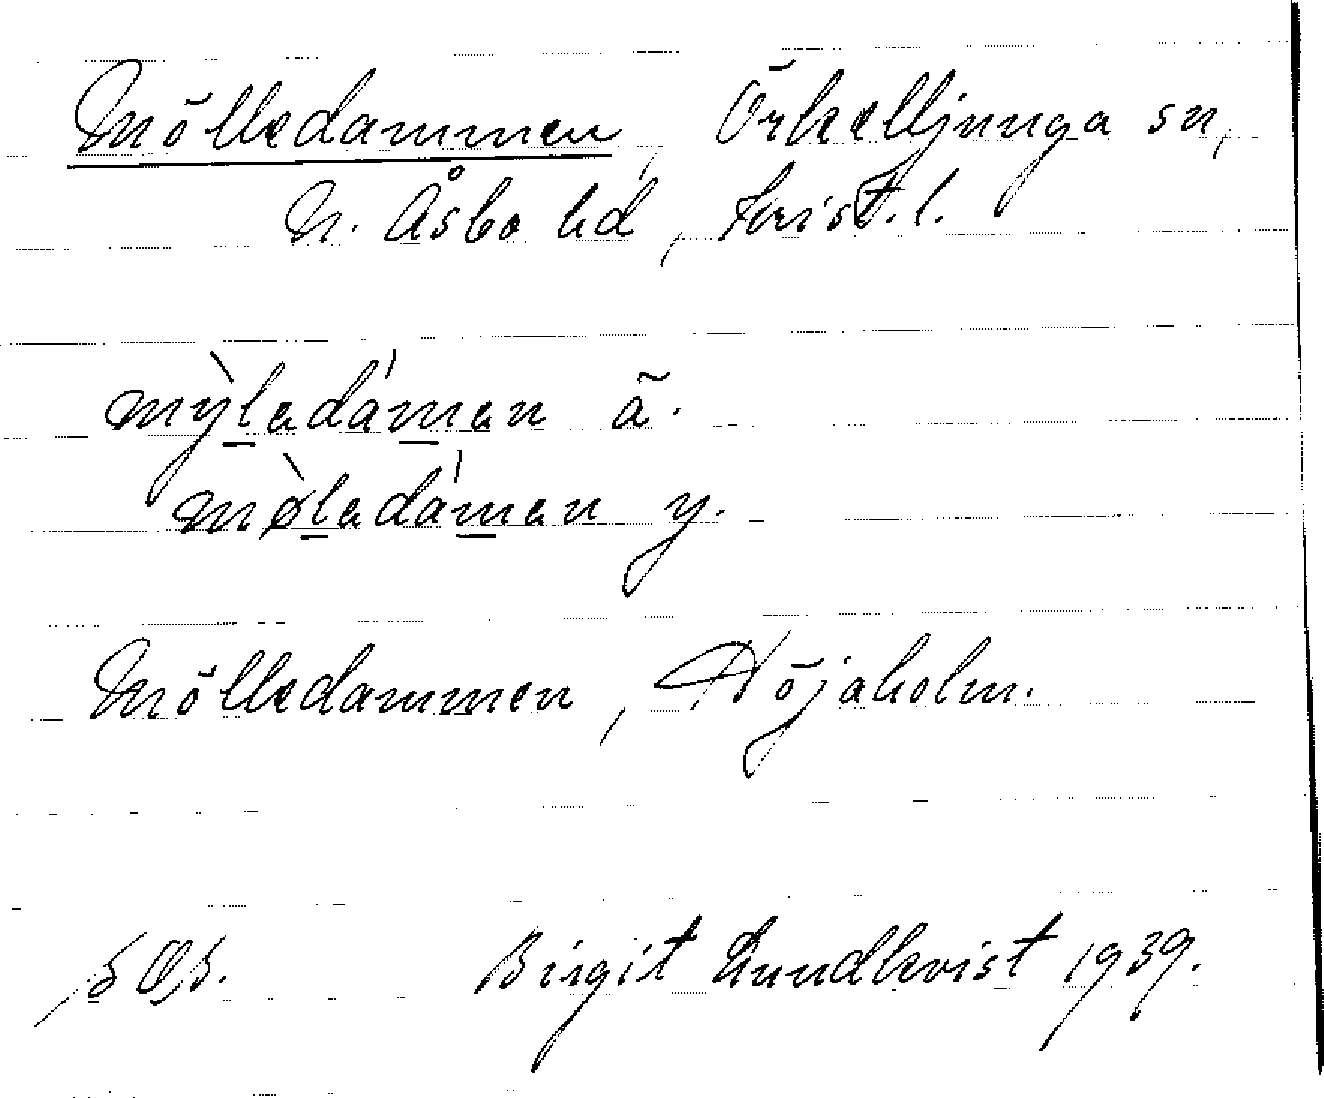 Mölledammen, Örkelljunga sn,
N. Åsbo hd, Krist. l.
mỳledámen ä.
mø̀ledámen y.
Mölledammen, Höjaholm.
Birgit Lundkvist 1939.